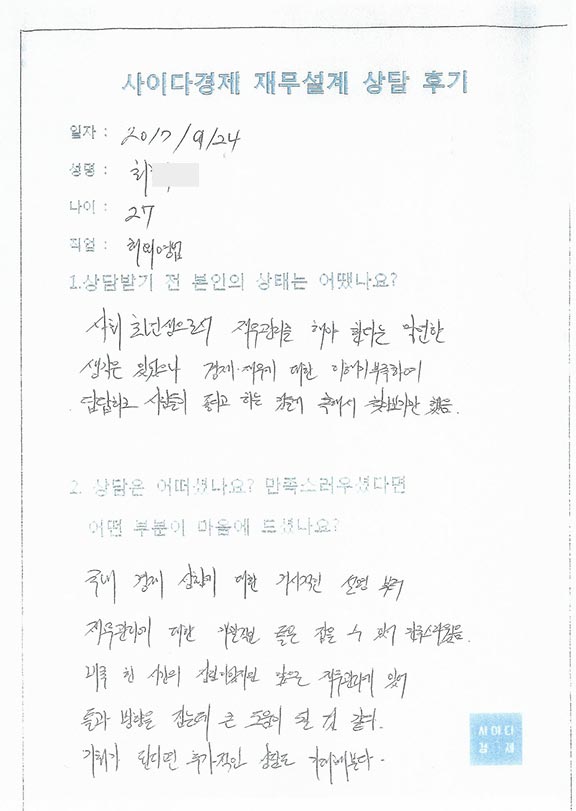 사이다경제 재무설계 상담 후기
일자 : 2017/9/24
성명 : 최
나이 : 27
직업 : 해외영업
1.상담받기 전 본인의 상태는 어땠나요?
사회 초년생으로서 재무관리를 해야 한다는 막연한
생각은 있었으나 경제·재무에 대한 이해가 부족하여
답답하고 사람들이 좋다고 하는 것들에 혹해서 찾아보기만 했음.
2. 상담은 어떠셨나요? 만족스러우셨다면
어떤 부분이 마음에 드셨나요?
국내 경제 상황에 대한 거시적인 설명 부터
재무관리에 대한 개괄적인 틀을 잡을 수 있어 만족스러웠음.
비록 한 시간의 상담이었지만 앞으로 재무관리에 있어
틀과 방향을 잡는데 큰 도움이 될 것 같다.
기회가 된다면 추가적인 상담도 기대해본다.
사이다
경제